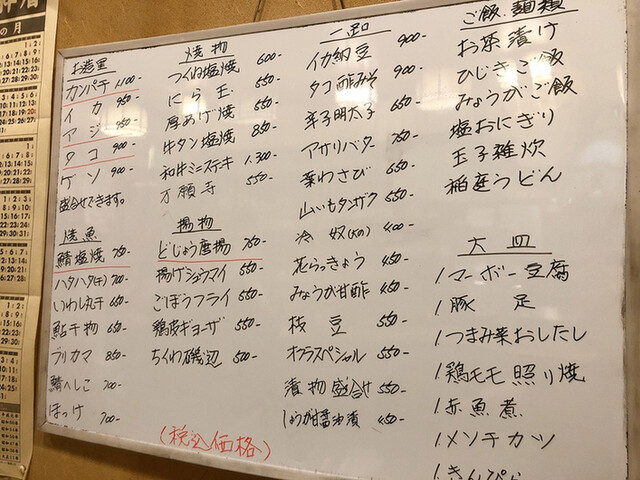 お造里
カンパチ 1,100-
イカ 950-
アジ 950-
タコ 900-
ゲソ 900-
盛合せできます。
焼魚
鯖塩焼 750-
ハタハタ(干) 700-
いわし丸干 650-
鮎干物 650-
ブリカマ 850-
鯖へしこ 700-
ほっけ 700-
焼物
つくね塩焼 600-
にら玉 550-
厚あげ焼 650-
牛タン塩焼 850-
和牛ミニステーキ 1,300-
万願寺 550-
揚物
どじょう唐揚 750-
揚げシュウマイ 550-
ごぼうフライ 550-
鶏皮ギョーザ 550-
ちくわ磯辺 500-
(税込価格)
一品
イカ納豆 900-
タコ酢みそ 900-
辛子明太子 650-
アサリバター 750-
葉わさび 650-
山いもタンザク 550-
冷奴 400-
花らっきょう 450-
みょうが甘酢 450-
枝豆 550-
オクラスペシャル 550-
漬物盛合せ 550-
しょうが甘醤油漬 450-
ご飯、麺類
お茶漬け
ひじきご飯
みょうがご飯
塩おにぎり
玉子雑炊
稲庭うどん
大皿
/マーボー豆腐
/豚足
/つまみ菜おしたし
/鶏モモ照り焼
/赤魚煮
/メンチカツ
/きんぴら